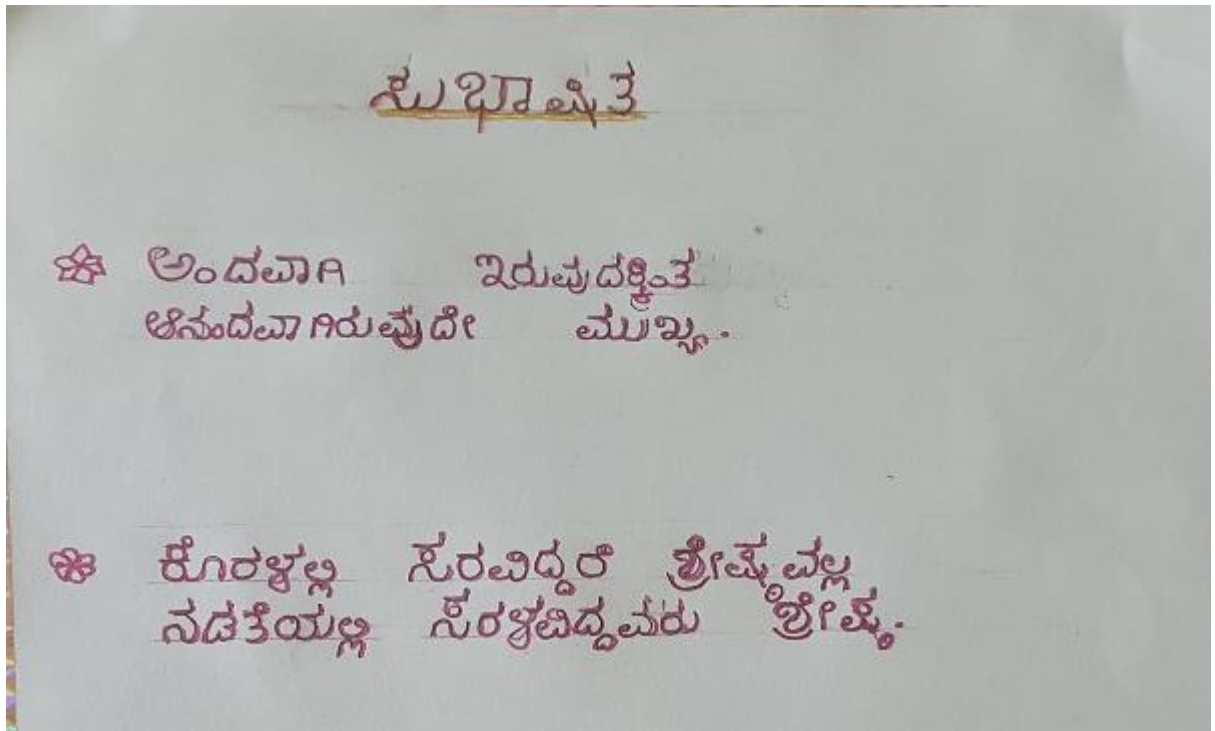 ಸುಭಾಷಿತ
ಅಂದವಾಗಿ ಇರುವುದಕ್ಕಿಂತ
ಆನಂದವಾಗಿರುವುದೇ ಮುಖ್ಯ.
ಕೊರಳಲ್ಲಿ ಸರವಿದ್ದರೆ ಶ್ರೇಷ್ಠವಲ್ಲ
ನಡತೆಯಲ್ಲಿ ಸರಳವಿದ್ದವರು ಶ್ರೇಷ್ಠ.